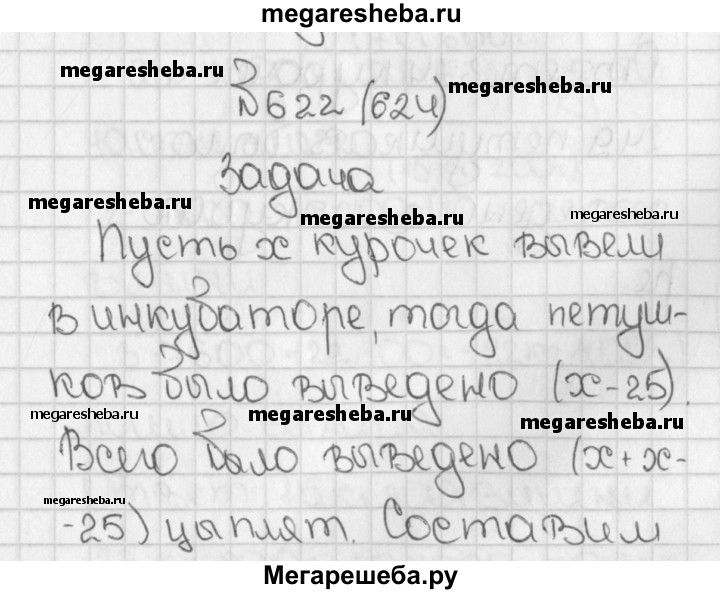 megaresheba.ru
megaresheba.ru
megaresheba.ru
№622 (624)
Задача
megaresheba.ru
megaresheba.ru
megaresheba.ru
Пусть x курочек вывели
в инкубаторе, тогда петуш-
ков было выведено (x-25).
megaresheba.ru
megaresheba.ru
megaresheba.ru
Всего было выведено (x+x-
megaresheba.ru
-25) цыплят. Составим
Мегарешеба.ру